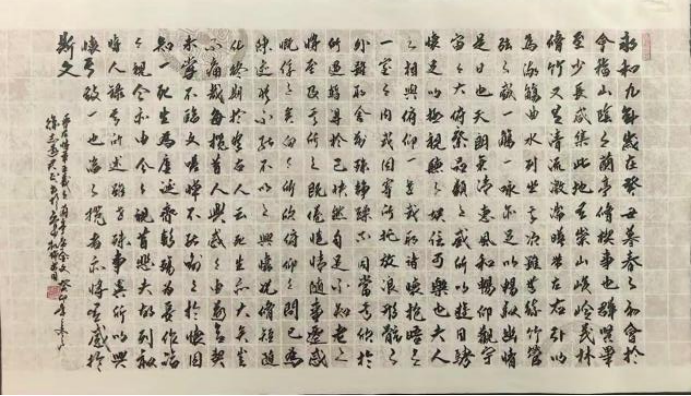 永和九年歲在癸丑暮春之初會於
會稽山陰之蘭亭脩稧事也群賢畢
至少長咸集此地有崇山峻嶺茂林
脩竹又有清流激湍暎帶左右引以
為流觴曲水列坐其次雖無絲竹管
弦之盛一觴一詠亦足以暢敘幽情
是日也天朗氣清惠風和暢仰觀宇
宙之大俯察品類之盛所以遊目騁
懷足以極視聽之娛信可樂也夫人
之相與俯仰一世或取諸懷抱晤言
一室之內或因寄所托放浪形骸之
外雖取舍萬殊靜躁不同當其欣於
所遇暫得於己快然自足不知老之
將至及其所之既倦情隨事遷感
慨係之矣向之所欣俯仰之間已為
陳迹猶不能不以之興懷況脩短隨
化終期於盡古人云死生亦大矣豈
不痛哉每攬昔人興感之由若合一契
未嘗不臨文嗟悼不能喻之於懷固
知一死生為虛誕齊彭殤為妄作後
之視今亦由今之視昔悲夫故列敘
時人錄其所述雖世殊事異所以興
懷其致一也後之攬者亦將有感於
斯文